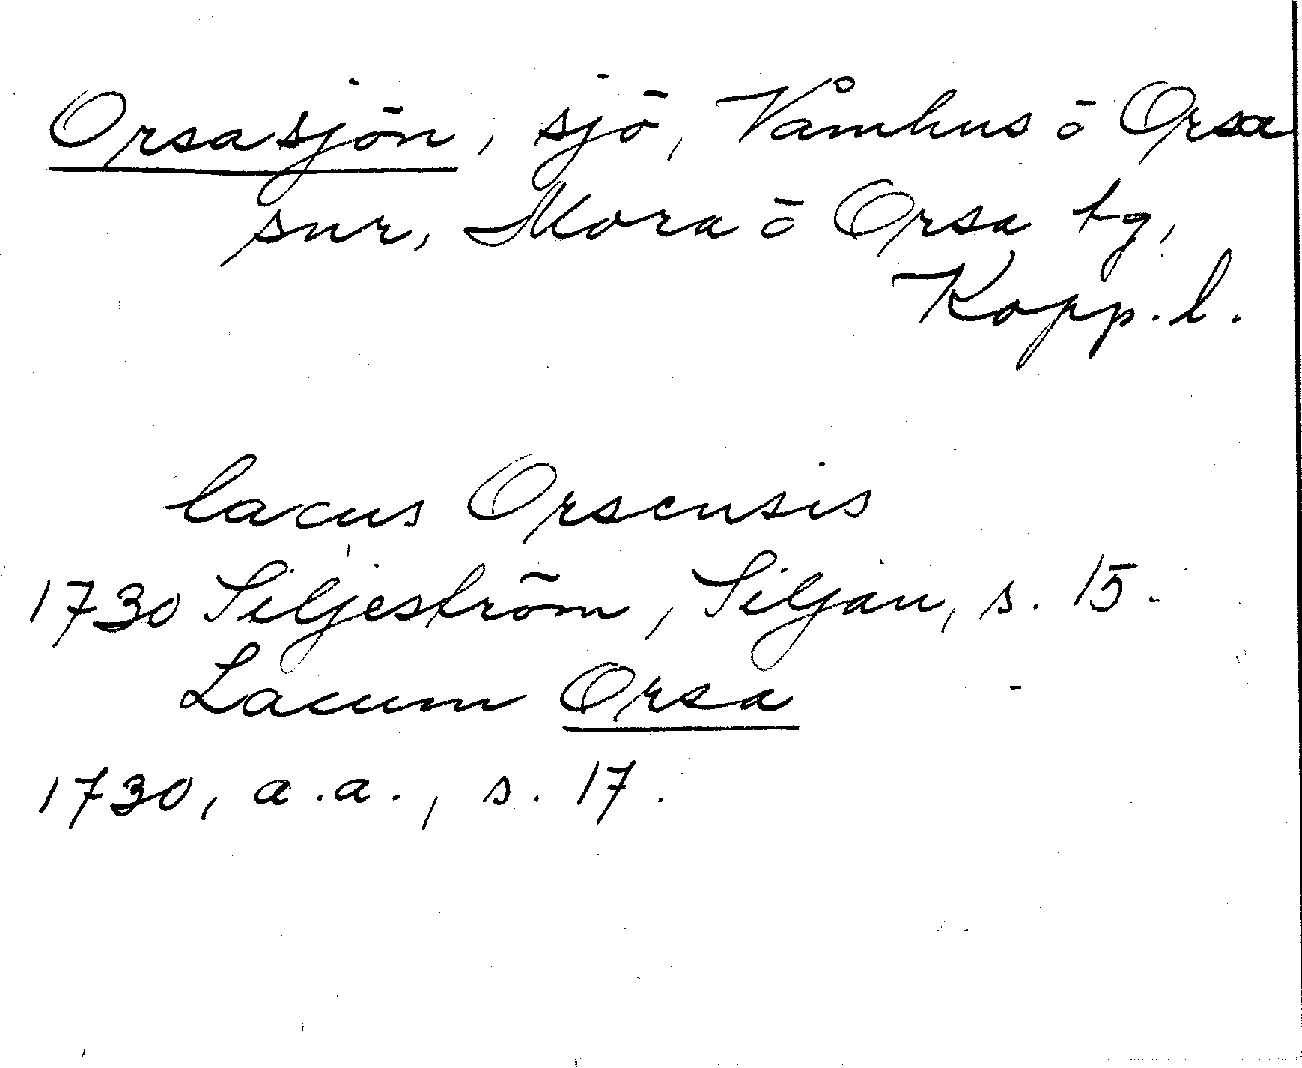 Orsasjön, sjö, Våmhus ō Orsa
snr, Mora ō Orsa tg,
Kopp. l.
lacus Orsensis
1730 Siljeström, Siljan, s. 15.
Lacum Orsa
1730, a.a., s. 17.